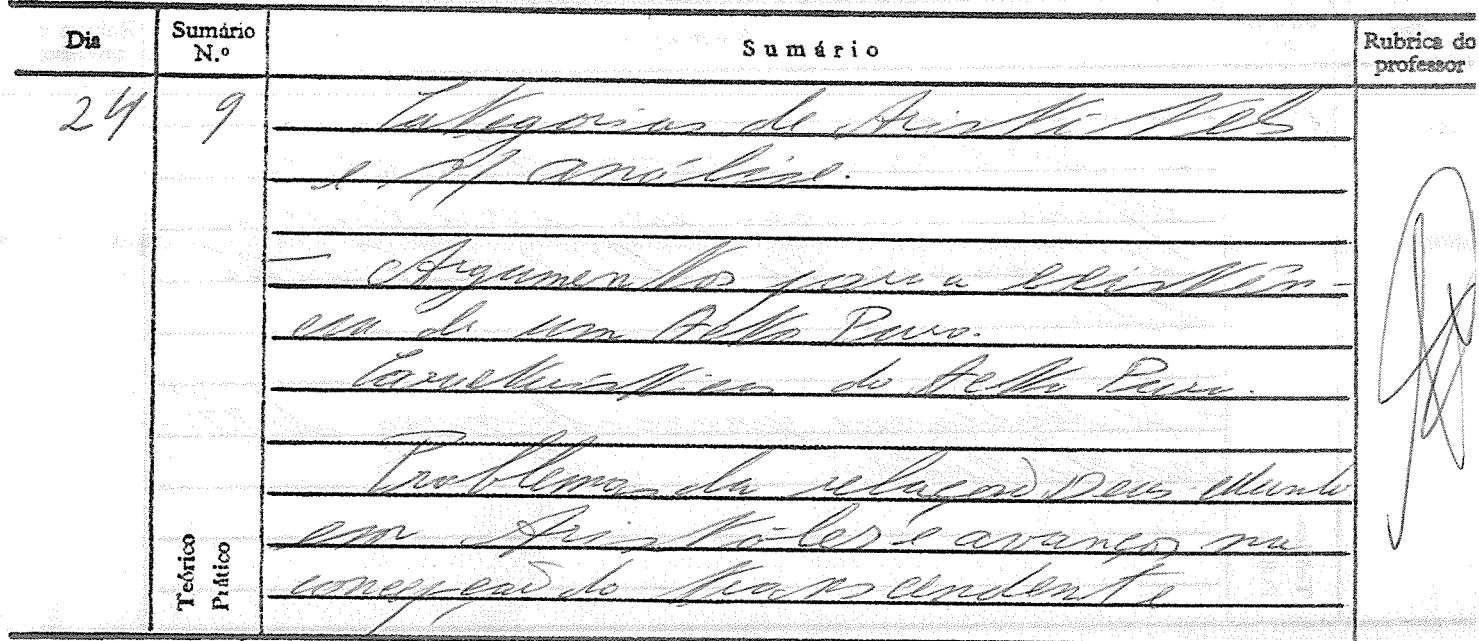 Dia
Sumário N.º
Sumário
Rubrica do professor
24
9
Categorias de Aristóteles
e s/ análise.
— Argumentos para a existên-
cia de um Acto Puro.
Características do Acto Puro.
Problema da relação Deus-Mundo
em Aristóteles e avanços na
concepção do transcendente
Teórico
Prático